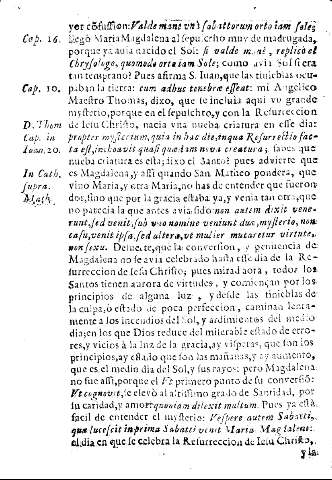 yor cõfussion: Valde manè vnà sabattorum orto iam sole;
Cap. 16. llegò Maria Magdalena al sepulchro muy de madrugada,
porque ya auia nacido el Sol: si valde manè, replicò el
Chrysologo, quomodo orto iam Sole; como avia Sol si era
tan temprano? Pues afirma S. Iuan, que las tinieblas ocu-
Cap. 10. paban la tierra: cum adhuc tenebræ essent: mi Angelico
Maestro Thomas, dixo, que se incluia aqui vn grande
mysterio, porque en el sepulchro, y con la Resurreccion
D. Thom de Iesu Christo, nacia vna nueba criatura en esse dia:
Cap. in propter mysterium, quia in hac die, inqua Resurrectio fac-
Ioan. 20. ta est, inchoavit quasi quædam nova creatura; sabes que
nueba criatura es esta; dixo el Santo? pues advierte que
In Cath. es Magdalena, y assi quando San Matheo pondera, que
supra. vino Maria, y otra Maria, no has de entender que fueron
Math. dos, sino que por la gracia estaba ya, y venia tan otra, que
no parecia la que antes avia sido non autem dixit vene-
runt, sed venit, sub vno nomine veniunt duæ, mysterio, non
casu, venit ipsa, sed altera, vt mulier mutaretur virtute,
non sexu. De suerte, que la conversion, y penitencia de
Magdalena no se avia celebrado hasta este dia de la Re-
surreccion de Iesu Christo; pues mirad aora, todos los
Santos tienen aurora de virtudes, y comiençan por los
principios de alguna luz, y desde las tinieblas de
la culpa, ò estado de poca perfeccion, caminan lenta-
mente à los incendios del Sol, y ardimentos del medio
dia; en los que Dios reduce del miserable estado de erro-
res, y vicios à la luz de la gracia, ay visperas, que son los
principios, ay estado que son las mañanas, y ay aumento,
que es el medio dia del Sol, y sus rayos: pero Magdalena
no fue assi, porque el primero punto de su conversiõ:
Vt cognovit, se elevò al altissimo grado de Santidad, por
su caridad, y amor: quoniam dilexit multum. Pues ya està
facil de entender el mysterio: Vespere autem Sabatti,
quæ lucescit in prima Sabatti venit Maria Magdalene:
el dia en que se celebra la Resurreccion de Iesu Christo,